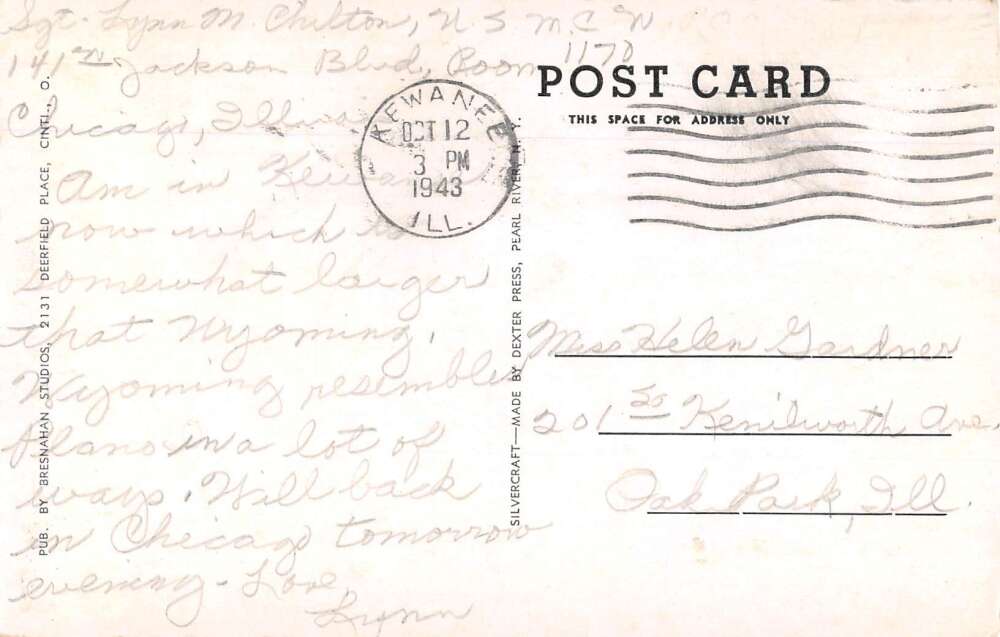 Sgt. Lynn M. Chilton, U S M C W
141 W. Jackson Blvd, Room 1170
Chicago, Illinois
Am in Kewanee
now which is
somewhat larger
that Wyoming.
Wyoming resembles
Plano in a lot of
ways. Will back
in Chicago tomorrow
evening - Love,
Lynn
PUB. BY BRESNAHAN STUDIOS, 2131 DEERFIELD PLACE, CINTI., O.
KEWANEE
OCT 12
3 PM
1943
ILL.
SILVERCRAFT—MADE BY DEXTER PRESS, PEARL RIVER, N. Y.
POST CARD
THIS SPACE FOR ADDRESS ONLY
Miss Helen Gardner
201 So Kenilworth Ave.
Oak Park, Ill.